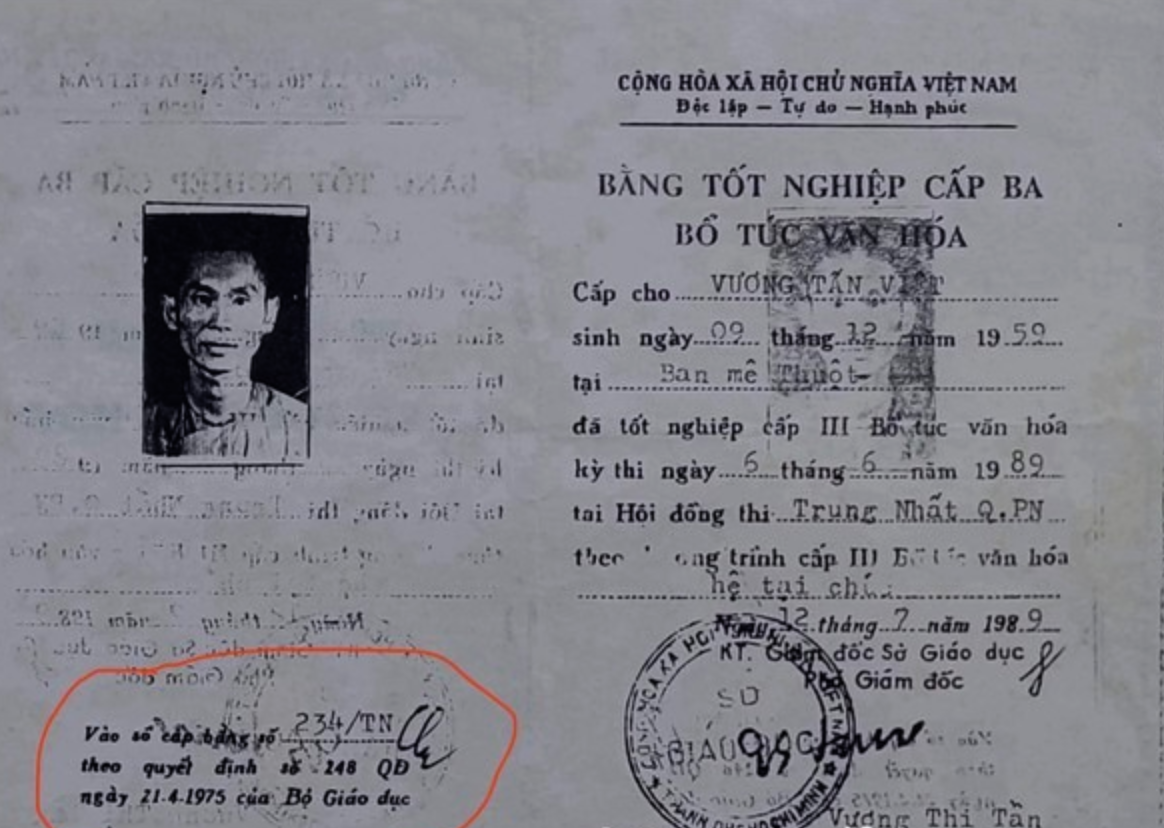 CỘNG HÒA XÃ HỘI CHỦ NGHĨA VIỆT NAM
Độc lập — Tự do — Hạnh phúc
BẰNG TỐT NGHIỆP CẤP BA
BỔ TÚC VĂN HÓA
Cấp cho VƯƠNG TẤN VIỆT
sinh ngày 09 tháng 12 năm 1959
tại Ban mê Thuột
đã tốt nghiệp cấp III Bổ túc văn hóa
kỳ thi ngày 6 tháng 6 năm 1989
tại Hội đồng thi Trung Nhất Q.PN
theo trình cấp III văn hóa
hệ tại
12 tháng 7 năm 1989
KT. Giám đốc Sở Giáo dục
Phó Giám đốc
SỞ
GIÁO DỤC
Vương Thị Tần
Vào sổ cấp bằng số 234/TN
theo quyết định số 248 QĐ
ngày 21.4.1975 của Bộ Giáo dục